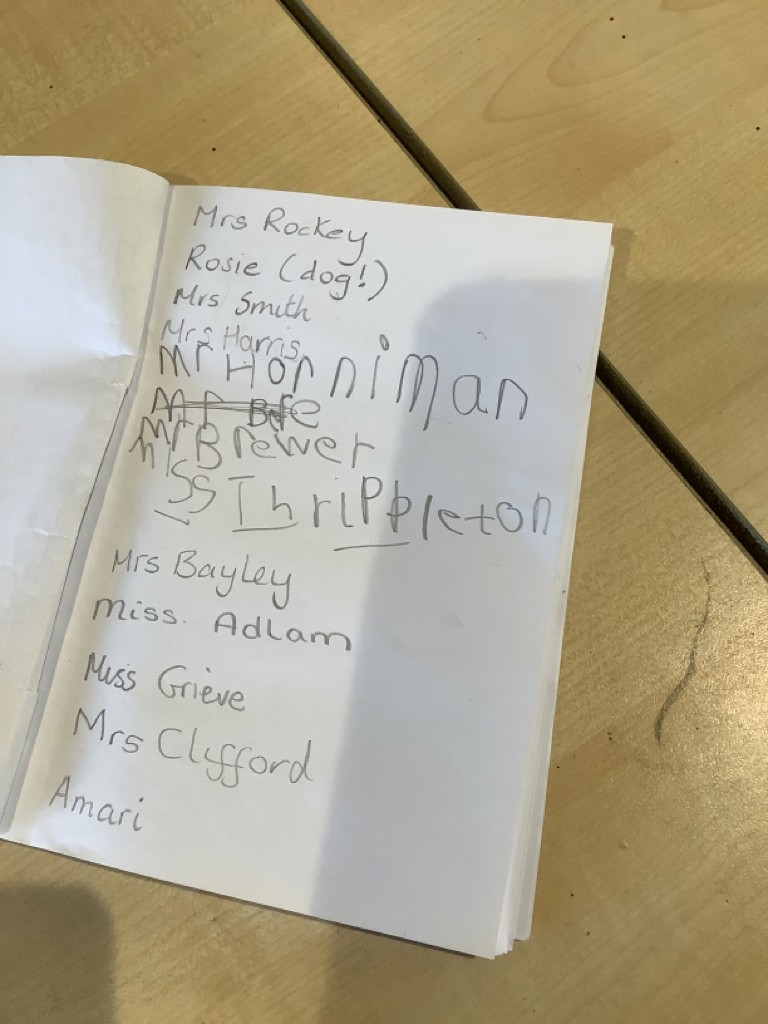 Mrs Rockey
Rosie (dog!)
Mrs Smith
Mrs Harris
Mr Horniman
Mr
Mr Brewer
Miss Thrippleton
Mrs Bayley
Miss. Adlam
Miss Grieve
Mrs Clifford
Amari